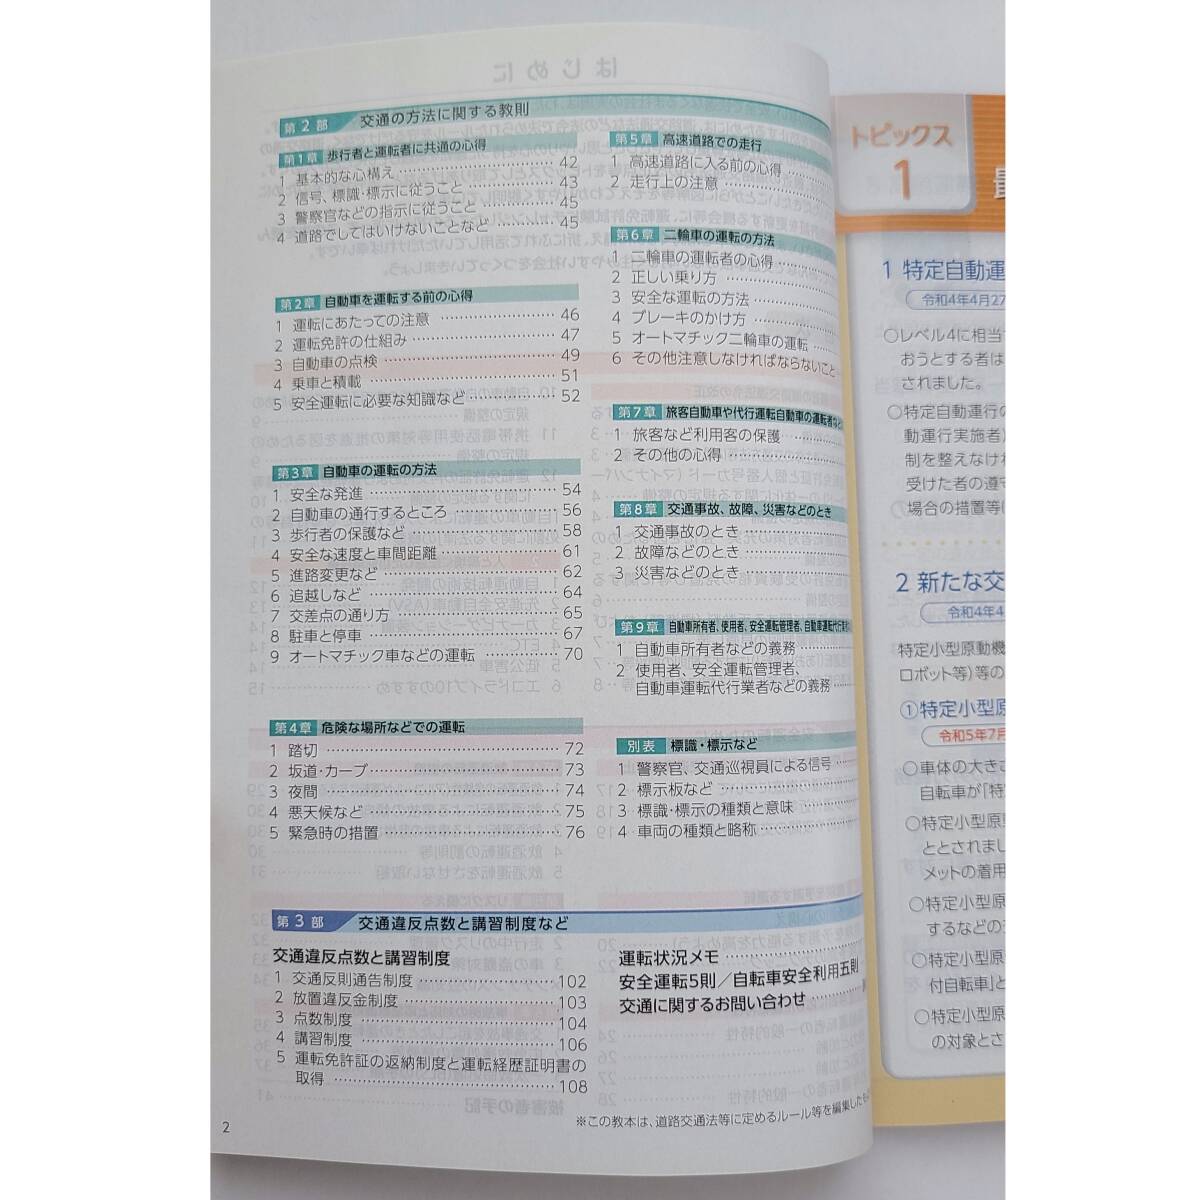 第2部 交通の方法に関する教則
第1章 歩行者と運転者に共通の心得
1 基本的な心構え 42
2 信号、標識・標示に従うこと 43
3 警察官などの指示に従うこと 45
4 道路でしてはいけないことなど 45
第2章 自動車を運転する前の心得
1 運転にあたっての注意 46
2 運転免許の仕組み 47
3 自動車の点検 49
4 乗車と積載 51
5 安全運転に必要な知識など 52
第3章 自動車の運転の方法
1 安全な発進 54
2 自動車の通行するところ 56
3 歩行者の保護など 58
4 安全な速度と車間距離 61
5 進路変更など 62
6 追越しなど 64
7 交差点の通り方 65
8 駐車と停車 67
9 オートマチック車などの運転 70
第4章 危険な場所などでの運転
1 踏切 72
2 坂道・カーブ 73
3 夜間 74
4 悪天候など 75
5 緊急時の措置 76
第5章 高速道路での走行
1 高速道路に入る前の心得
2 走行上の注意
第6章 二輪車の運転の方法
1 二輪車の運転者の心得
2 正しい乗り方
3 安全な運転の方法
4 ブレーキのかけ方
5 オートマチック二輪車の運転
6 その他注意しなければならないこと
第7章 旅客自動車や代行運転自動車の運転者など
1 旅客など利用客の保護
2 その他の心得
第8章 交通事故、故障、災害などのとき
1 交通事故のとき
2 故障などのとき
3 災害などのとき
第9章 自動車所有者、使用者、安全運転管理者、自動車運転代行業
1 自動車所有者などの義務
2 使用者、安全運転管理者、
自動車運転代行業者などの義務
別表 標識・標示など
1 警察官、交通巡視員による信号
2 標示板など
3 標識・標示の種類と意味
4 車両の種類と略称
第3部 交通違反点数と講習制度など
交通違反点数と講習制度
1 交通反則通告制度 102
2 放置違反金制度 103
3 点数制度 104
4 講習制度 106
5 運転免許証の返納制度と運転経歴証明書の
取得 108
運転状況メモ
安全運転5則／自転車安全利用五則
交通に関するお問い合わせ
※この教本は、道路交通法等に定めるルール等を編集したも
2
トピックス
1
1 特定自動運
令和4年4月27
○レベル4に相当
おうとする者は
されました。
○特定自動運行の
動運行実施者)
制を整えなけれ
受けた者の遵守
場合の措置等
2 新たな交
令和4年4
特定小型原動機
ロボット等)等の
①特定小型原
令和5年7月
○車体の大きさ
自転車が「特
○特定小型原動
ととされまし
メットの着用
○特定小型原
するなどの
○特定小型原
付自転車」と
○特定小型原
の対象とさ